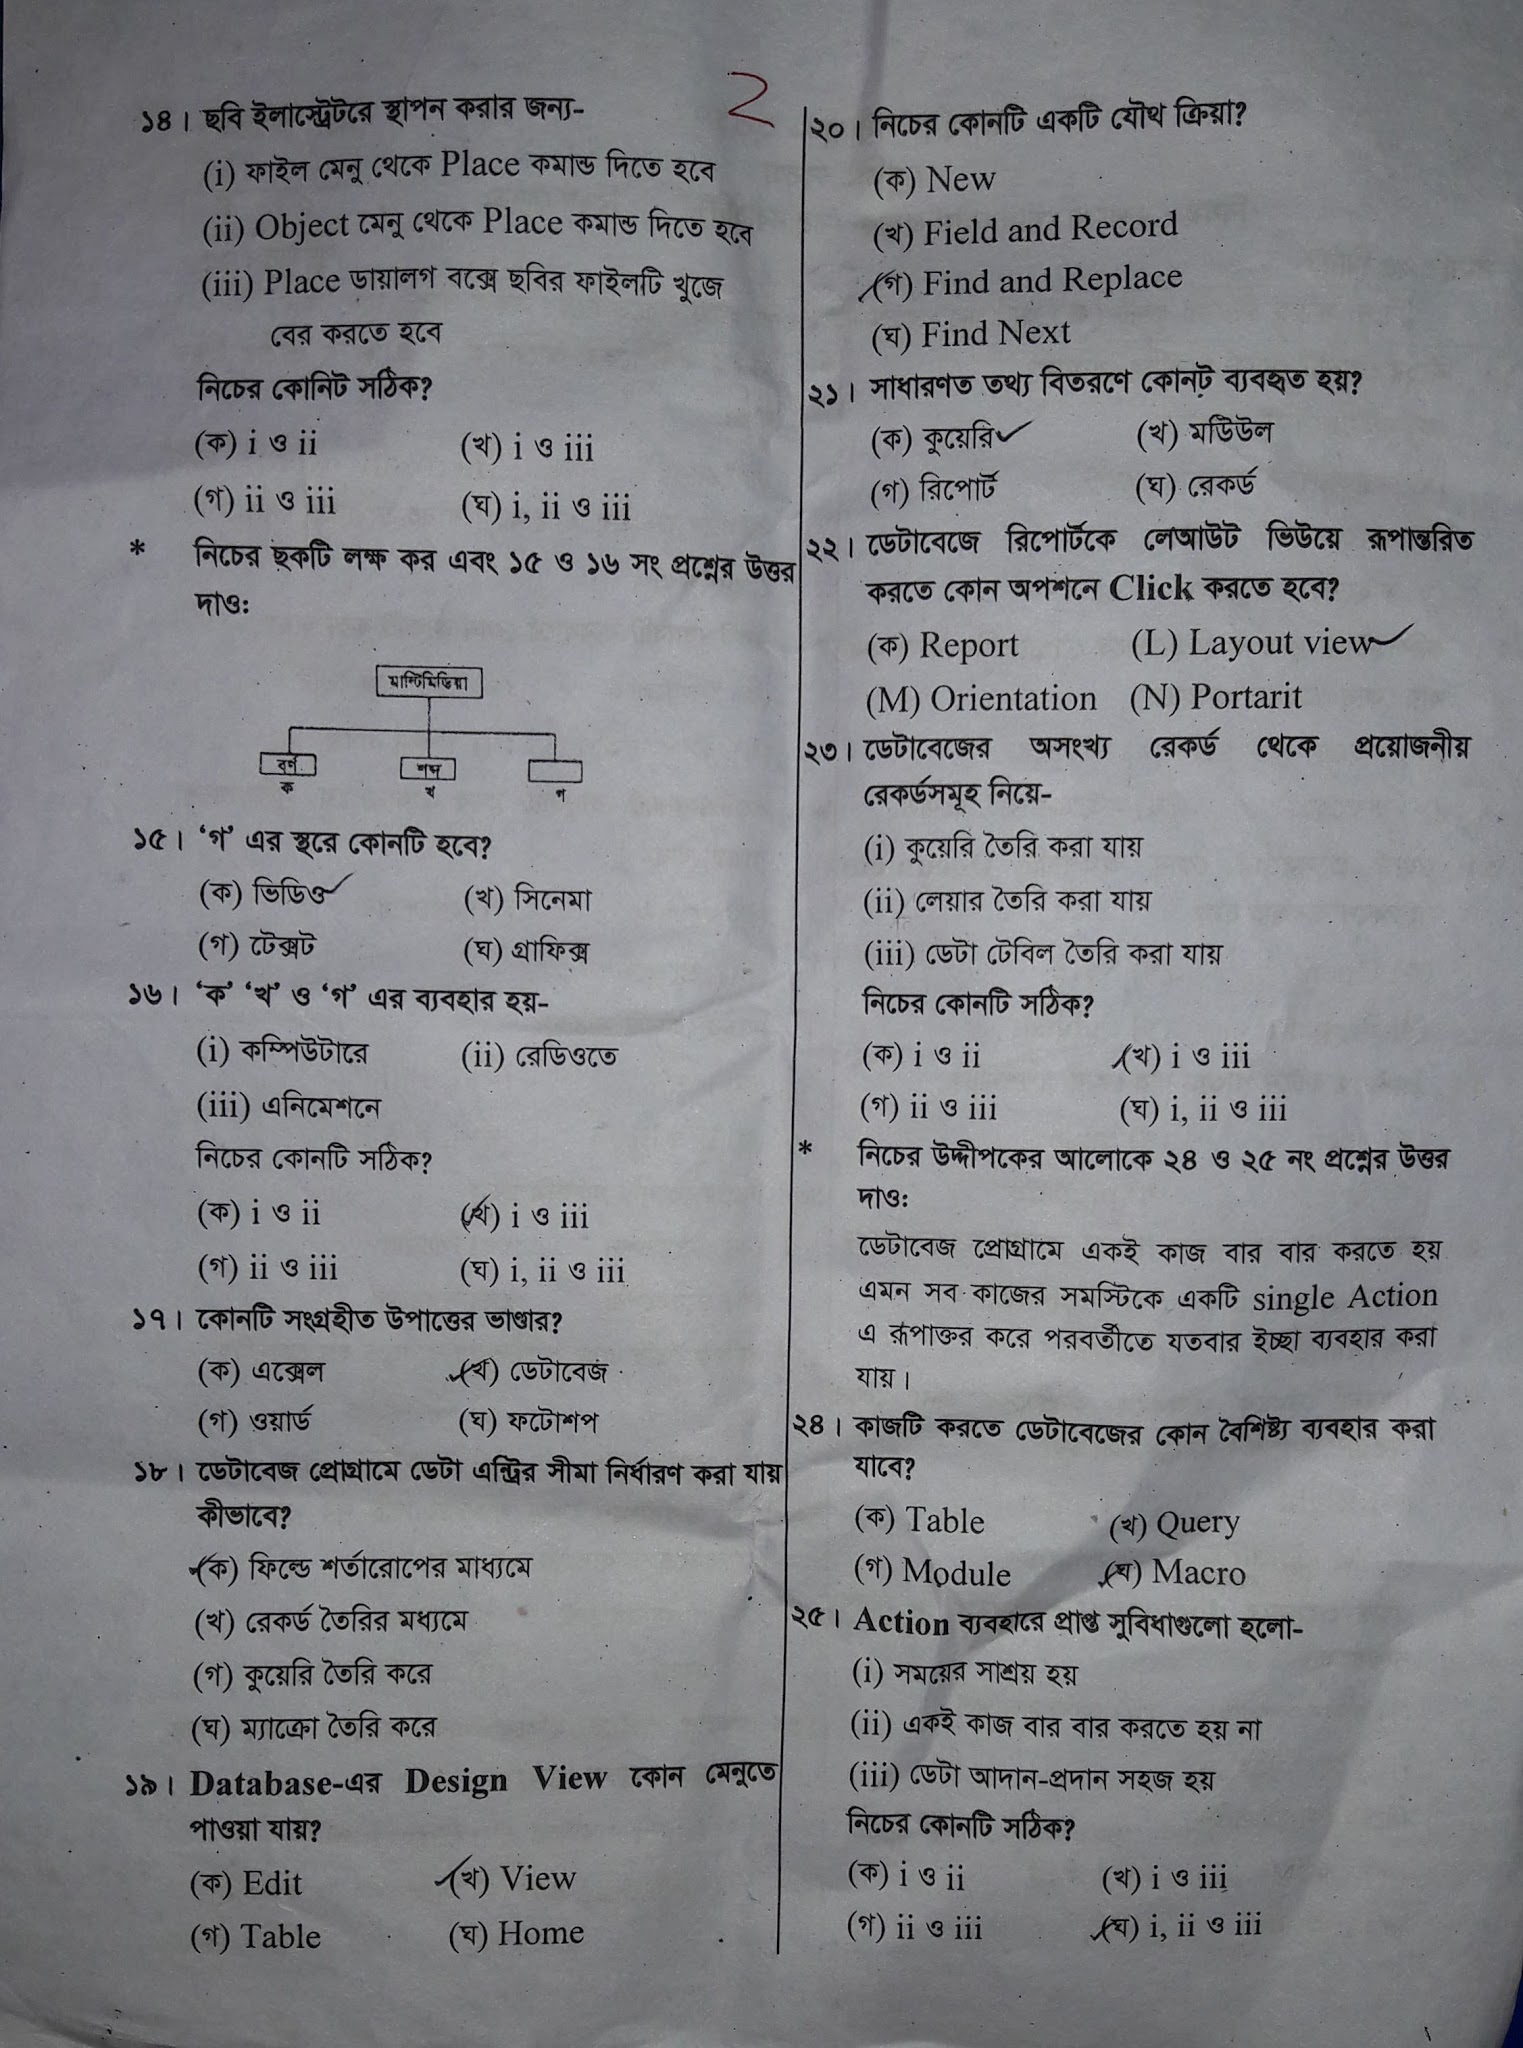 2
১৪। ছবি ইলাস্ট্রেটরে স্থাপন করার জন্য-
(i) ফাইল মেনু থেকে Place কমান্ড দিতে হবে
(ii) Object মেনু থেকে Place কমান্ড দিতে হবে
(iii) Place ডায়ালগ বক্সে ছবির ফাইলটি খুজে
বের করতে হবে
নিচের কোনিট সঠিক?
(ক) i ও ii (খ) i ও iii
(গ) ii ও iii (ঘ) i, ii ও iii
* নিচের ছকটি লক্ষ কর এবং ১৫ ও ১৬ সং প্রশ্নের উত্তর
দাও:
মাল্টিমিডিয়া
বর্ণ শব্দ
ক খ গ
১৫। ‘গ’ এর স্থরে কোনটি হবে?
(ক) ভিডিও (খ) সিনেমা
(গ) টেক্সট (ঘ) গ্রাফিক্স
১৬। ‘ক’ ‘খ’ ও ‘গ’ এর ব্যবহার হয়-
(i) কম্পিউটারে (ii) রেডিওতে
(iii) এনিমেশনে
নিচের কোনটি সঠিক?
(ক) i ও ii (খ) i ও iii
(গ) ii ও iii (ঘ) i, ii ও iii
১৭। কোনটি সংগ্রহীত উপাত্তের ভাণ্ডার?
(ক) এক্সেল (খ) ডেটাবেজ
(গ) ওয়ার্ড (ঘ) ফটোশপ
১৮। ডেটাবেজ প্রোগ্রামে ডেটা এন্ট্রির সীমা নির্ধারণ করা যায়
কীভাবে?
(ক) ফিল্ডে শর্তারোপের মাধ্যমে
(খ) রেকর্ড তৈরির মধ্যমে
(গ) কুয়েরি তৈরি করে
(ঘ) ম্যাক্রো তৈরি করে
১৯। Database-এর Design View কোন মেনুতে
পাওয়া যায়?
(ক) Edit (খ) View
(গ) Table (ঘ) Home
২০। নিচের কোনটি একটি যৌথ ক্রিয়া?
(ক) New
(খ) Field and Record
(গ) Find and Replace
(ঘ) Find Next
২১। সাধারণত তথ্য বিতরণে কোনট ব্যবহৃত হয়?
(ক) কুয়েরি (খ) মডিউল
(গ) রিপোর্ট (ঘ) রেকর্ড
২২। ডেটাবেজে রিপোর্টকে লেআউট ভিউয়ে রূপান্তরিত
করতে কোন অপশনে Click করতে হবে?
(ক) Report (L) Layout view
(M) Orientation (N) Portarit
২৩। ডেটাবেজের অসংখ্য রেকর্ড থেকে প্রয়োজনীয়
রেকর্ডসমূহ নিয়ে-
(i) কুয়েরি তৈরি করা যায়
(ii) লেয়ার তৈরি করা যায়
(iii) ডেটা টেবিল তৈরি করা যায়
নিচের কোনটি সঠিক?
(ক) i ও ii (খ) i ও iii
(গ) ii ও iii (ঘ) i, ii ও iii
* নিচের উদ্দীপকের আলোকে ২৪ ও ২৫ নং প্রশ্নের উত্তর
দাও:
ডেটাবেজ প্রোগ্রামে একই কাজ বার বার করতে হয়
এমন সব কাজের সমস্টিকে একটি single Action
এ রূপাক্তর করে পরবর্তীতে যতবার ইচ্ছা ব্যবহার করা
যায়।
২৪। কাজটি করতে ডেটাবেজের কোন বৈশিষ্ট্য ব্যবহার করা
যাবে?
(ক) Table (খ) Query
(গ) Module (ঘ) Macro
২৫। Action ব্যবহারে প্রাপ্ত সুবিধাগুলো হলো-
(i) সময়ের সাশ্রয় হয়
(ii) একই কাজ বার বার করতে হয় না
(iii) ডেটা আদান-প্রদান সহজ হয়
নিচের কোনটি সঠিক?
(ক) i ও ii (খ) i ও iii
(গ) ii ও iii (ঘ) i, ii ও iii